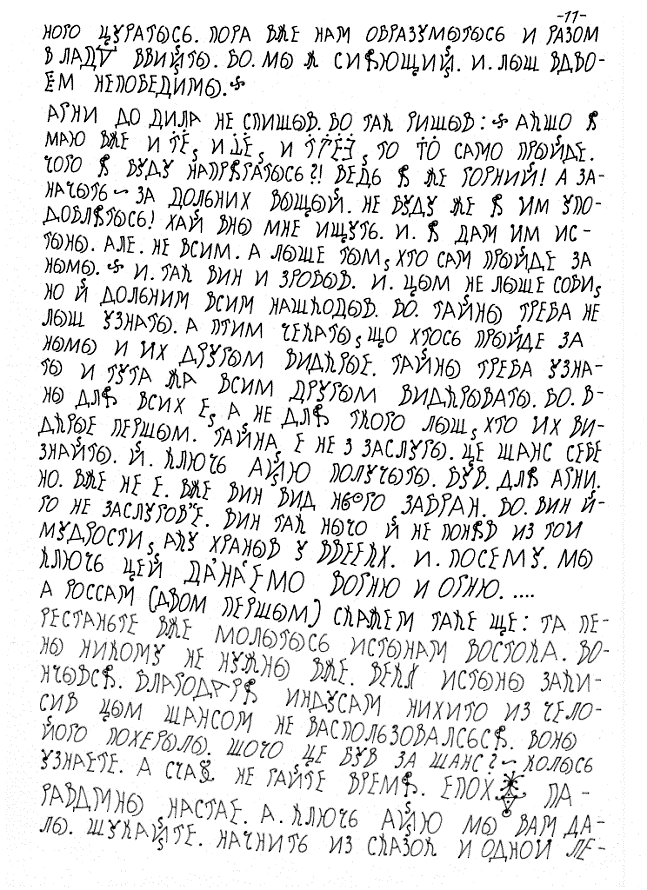 -11-
НОГО ЦУРАТЫСЬ. ПОРА ВЖЕ НАМ ОБРАЗУМЫТЫСЬ И РАЗОМ
В ЛАДУ ВВИЙТЫ. БО. МЫ Ж СИЯЮЩИЙ. И. ЛЫШ ВДВО-
ЁМ НЕПОБЕДИМЫ.
АГНИ ДО ДИЛА НЕ СПИШЫВ. БО ТАК РИШЫВ: АКШО Я
МАЮ ВЖЕ И ТЕ, И ЦЕ, И ТРЕЭ, ТО ТО САМО ПРЫЙДЕ.
ЧОГО Я БУДУ НАПРЯГАТЫСЬ?! ВЕДЬ Я ЖЕ ГОРНИЙ! А ЗА-
НАЧЫТЬ ~ ЗА ДОЛЬНИХ ВЫЩЫЙ. НЕ БУДУ ЖЕ Я ИМ УПО-
ДОБЛЯТЫСЬ! ХАЙ ВНЫ МНЕ ИЩУТЬ. И. Я ДАМ ИМ ИС-
ТЫНЫ. АЛЕ. НЕ ВСИМ. А ЛЫШЕ ТЫМ, ХТО САМ ПРЫЙДЕ ЗА
НЫМЫ. И. ТАК ВИН И ЗРОБЫВ. И. ЦЫМ НЕ ЛЫШЕ СОБИ,
НО Й ДОЛЬНИМ ВСИМ НАШКОДЫВ. БО. ТАЙНЫ ТРЕБА НЕ
ЛЫШ УЗНАТЫ. А ПТИМ ЧЕКАТЫ, ЩО ХТОСЬ ПРЫЙДЕ ЗА
НЫМЫ И ИХ ДРУГЫМ ВИДКРЫЕ. ТАЙНЫ ТРЕБА УЗНА-
ТЫ И ТУТА ЖА ВСИМ ДРУГЫМ ВИДКРЫВАТЫ. БО. В-
НЫ ДЛЯ ВСИХ Е, А НЕ ДЛЯ ТКОГО ЛЫШ, ХТО ИХ ВИ-
ДКРЫЕ ПЕРШЫМ. ТАЙНА Е НЕ З ЗАСЛУГЫ. ЦЕ ШАНС СЕБЕ
ЗНАЙТЫ. Й. КЛЮЧЬ АЙЮ ПОЛУЧЫТЫ. БУВ. ДЛЯ АГНИ.
НО. ВЖЕ НЕ Е. ВЖЕ ВИН ВИД НЬОГО ЗАБРАН. БО. ВИН Й-
ГО НЕ ЗАСЛУГОВ'Е. ВИН ТАК НЫЧО Й НЕ ПОНЯВ ИЗ ТОЙ
МУДРОСТИ, АКУ ХРАНЫВ У ВВЕЕКХ. И. ПОСЕМУ. МЫ
КЛЮЧЬ ЦЕЙ ДАНАЕМО ВОГНЮ И ОГНЮ. ....
А РОССАМ (АВОМ ПЕРШЫМ) СКАЖЕМ ТАКЕ ЩЕ: ТА ПЕ-
РЕСТАНЬТЕ ВЖЕ МОЛЫТЫСЬ ИСТЫНАМ ВОСТОКА. ВО-
НЫ НИКОМУ НЕ НУЖНЫ ВЖЕ. ВЕКА ИСТЫНЫ ЗАКИ-
НЧЫВСЯ. БЛАГОДАРЯ ИНДУСАМ НИХИТО ИЗ ЧЕЛО-
СИВ ЦЫМ ШАНСОМ НЕ ВАСПОЛЬЗОВАЛСЬСЯ. ВОНЫ
ЙОГО ПОХЕРЫЛЫ. ШОЧО ЦЕ БУВ ЗА ШАНС? ~ КОЛЫСЬ
УЗНАЕТЕ. А СЧАЗ НЕ ГАЙТЕ ВРЕМЯ. ЕПОХ ПА-
РАВДМНЫ НАСТАЕ. А. КЛЮЧЬ АЙЮ МЫ ВАМ ДА-
ЛЫ. ШУКАЙТЕ. НАЧНИТЬ ИЗ СКАЗОК И ОДНОЙ ЛЕ-